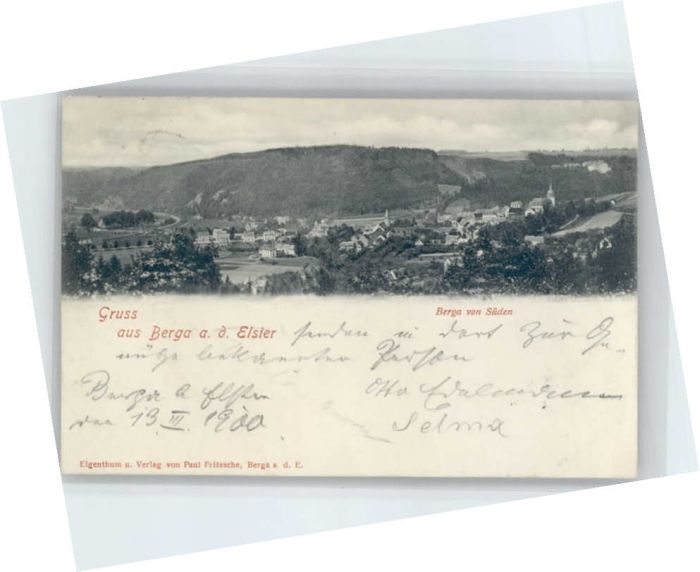 Gruss
aus Berga a. d. Elster
Berga von Süden
senden in dort zur Ge-
nüge bekannter Person
Berga a Elster
den 13 III. 1900
Otto
Selma
Eigenthum u. Verlag von Paul Fritzsche, Berga a. d. E.